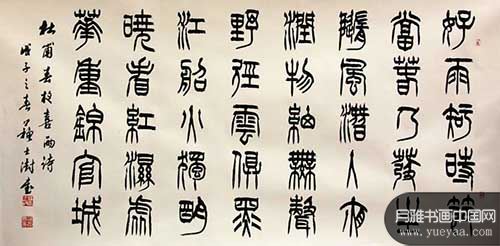 好雨知時節
當春乃發生
隨風潛入夜
潤物細無聲
野徑雲俱黑
江船火獨明
曉看紅濕處
華重錦官城
杜甫春夜喜雨詩
戊子之春蘇士澍書
月雅书画中国网
www.yueyaa.com